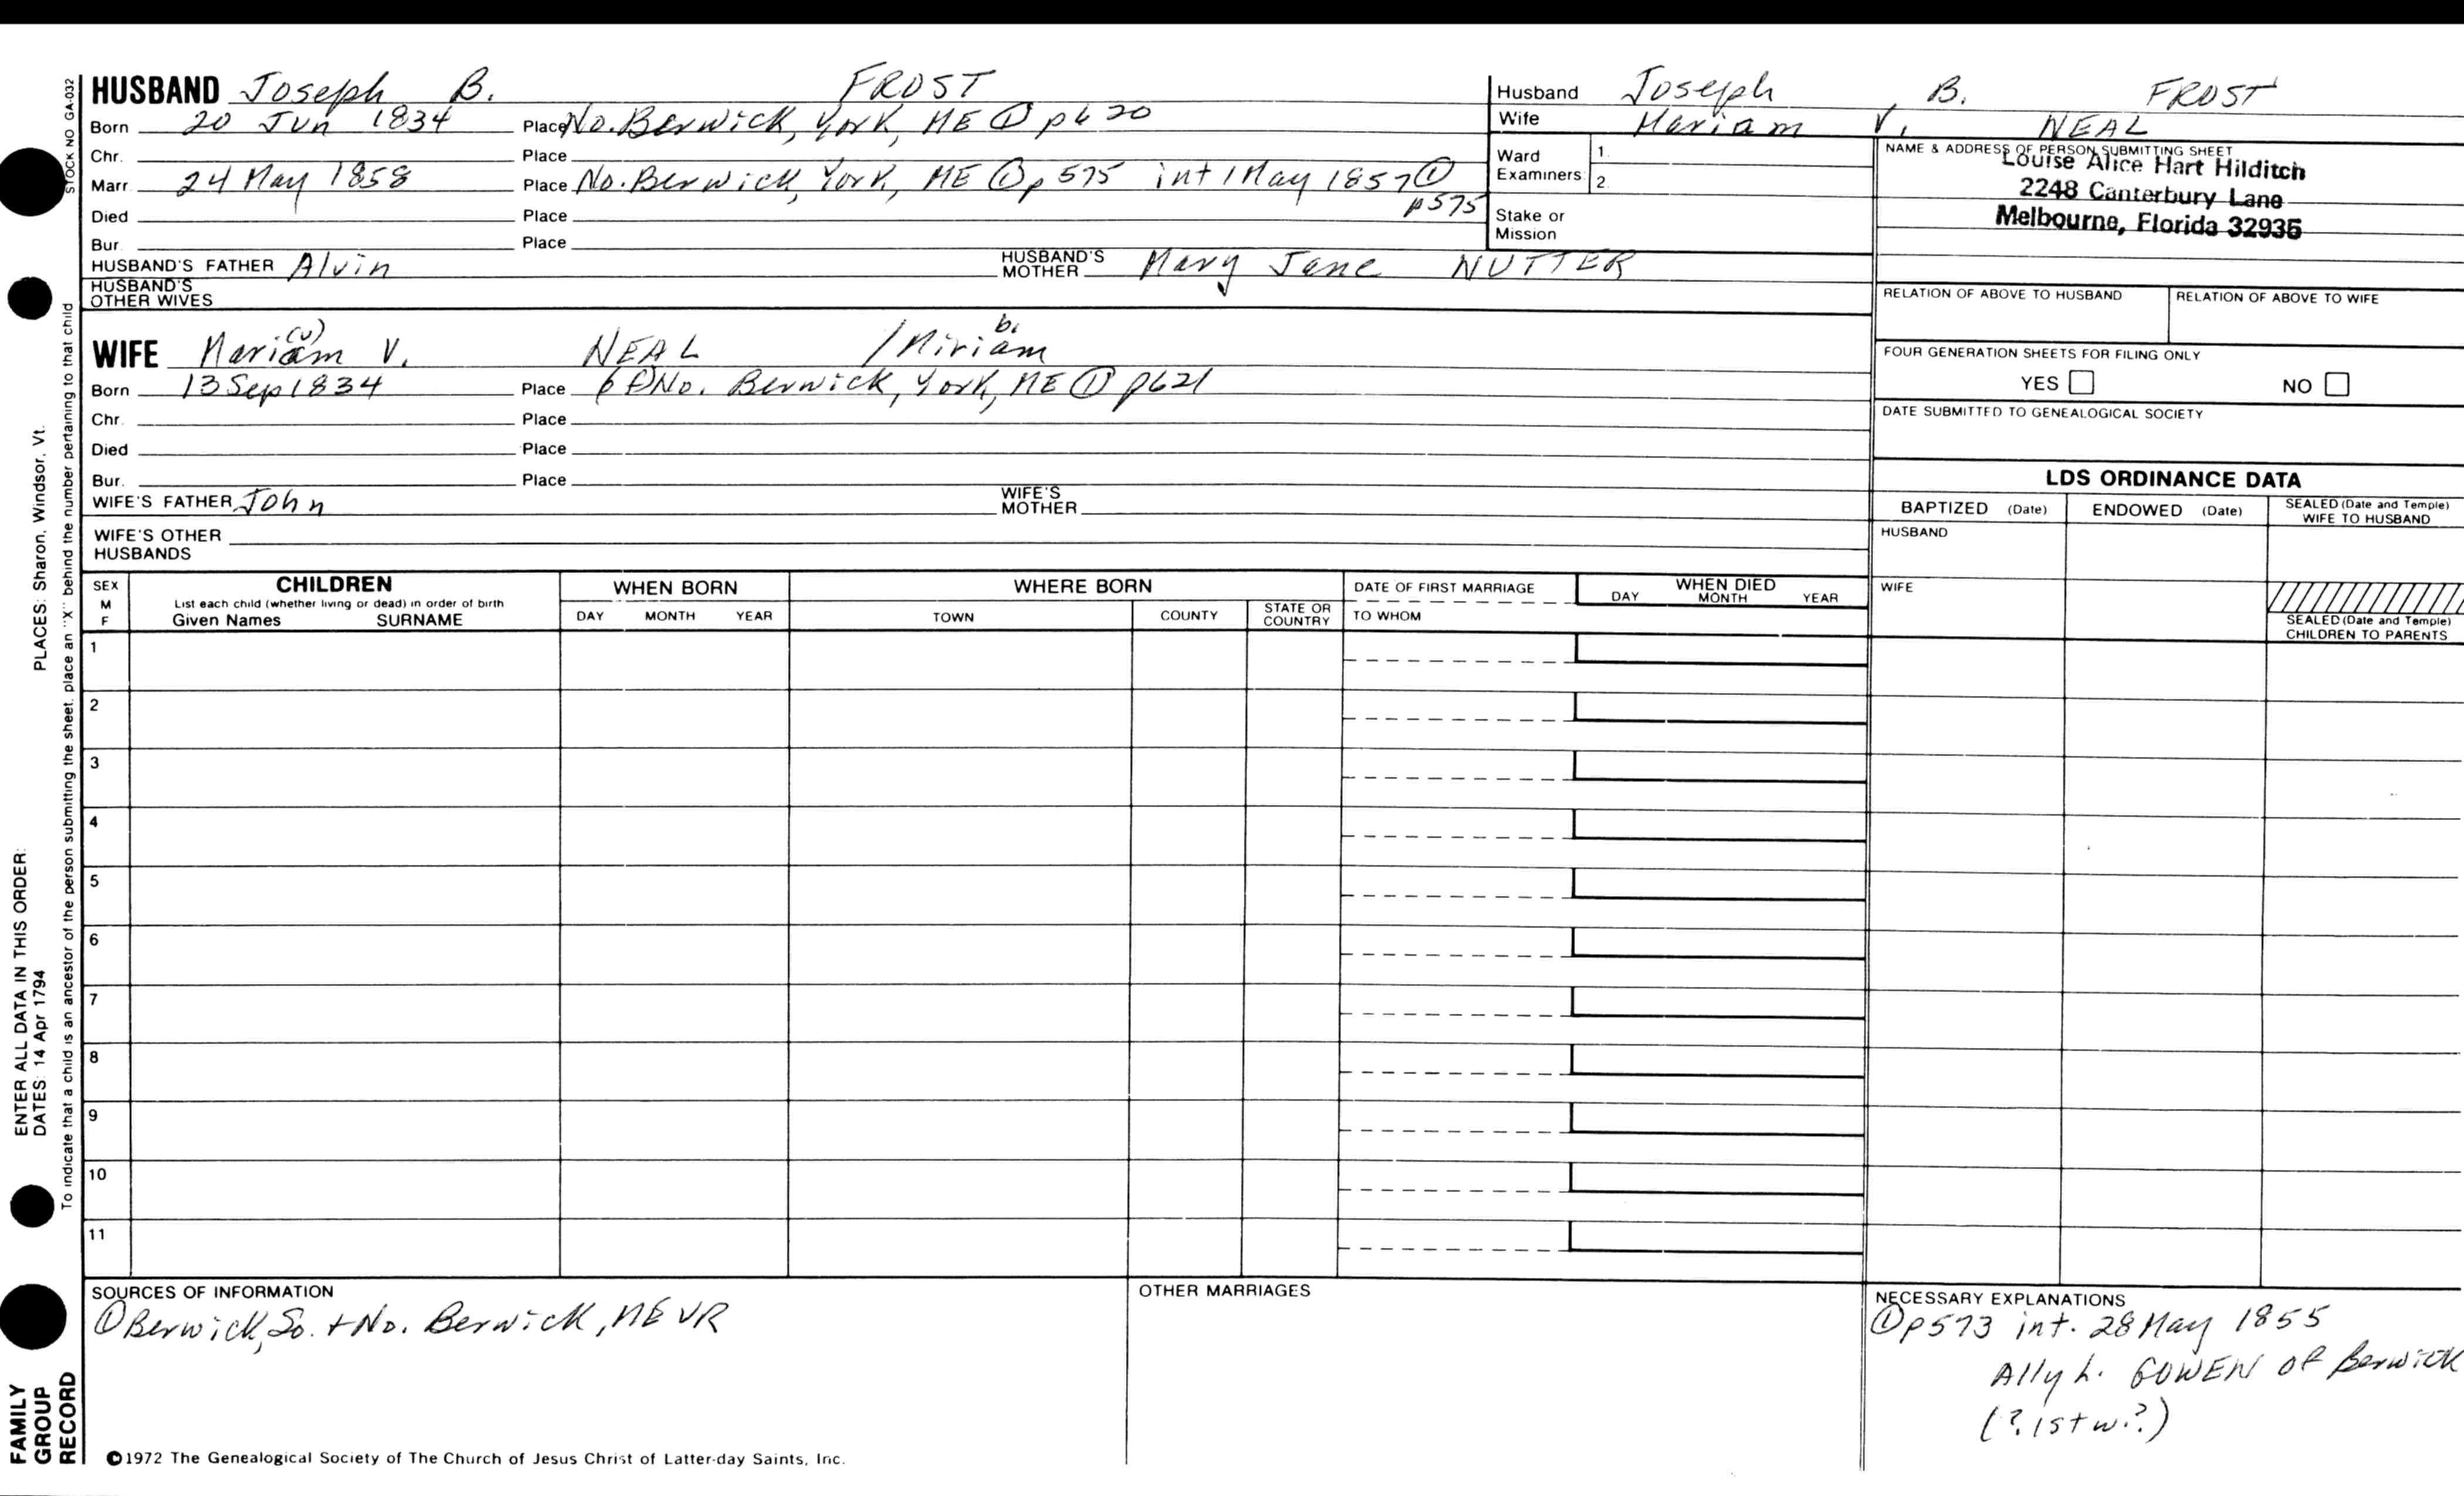 HUSBAND Joseph B. FROST
Born 20 Jun 1834 Place No. Berwick, York, ME ① p620
Chr. Place
Marr. 24 May 1858 Place No. Berwick, York, ME ① p575 int 1 May 1857 ① p575
Died Place
Bur. Place
HUSBAND'S FATHER Alvin HUSBAND'S MOTHER Mary Jane NUTTER
HUSBAND'S OTHER WIVES
WIFE Mariam (v) V. NEAL / Miriam b.
Born 13 Sep 1834 Place No. Berwick, York, ME ① p621
Chr. Place
Died Place
Bur. Place
WIFE'S FATHER John WIFE'S MOTHER
WIFE'S OTHER HUSBANDS
Husband Joseph B. FROST
Wife Mariam V. NEAL
Ward Examiners 1. 2.
Stake or Mission
NAME & ADDRESS OF PERSON SUBMITTING SHEET
Louise Alice Hart Hilditch
2248 Canterbury Lane
Melbourne, Florida 32935
RELATION OF ABOVE TO HUSBAND RELATION OF ABOVE TO WIFE
FOUR GENERATION SHEETS FOR FILING ONLY
YES NO
DATE SUBMITTED TO GENEALOGICAL SOCIETY
LDS ORDINANCE DATA
BAPTIZED (Date) ENDOWED (Date) SEALED (Date and Temple) WIFE TO HUSBAND
HUSBAND
WIFE
SEALED (Date and Temple) CHILDREN TO PARENTS
SEX M F CHILDREN WHEN BORN WHERE BORN DATE OF FIRST MARRIAGE WHEN DIED
List each child (whether living or dead) in order of birth
Given Names SURNAME DAY MONTH YEAR TOWN COUNTY STATE OR COUNTRY TO WHOM DAY MONTH YEAR
1
2
3
4
5
6
7
8
9
10
11
SOURCES OF INFORMATION
① Berwick, So. + No. Berwick, ME VR
OTHER MARRIAGES
NECESSARY EXPLANATIONS
① p573 int. 28 May 1855
Ally L. GOWEN of Berwick
(? 1st w.?)
©1972 The Genealogical Society of The Church of Jesus Christ of Latter-day Saints, Inc.
STOCK NO GA-032
To indicate that a child is an ancestor of the person submitting the sheet, place an "X" behind the number pertaining to that child
ENTER ALL DATA IN THIS ORDER:
DATES: 14 Apr 1794 PLACES: Sharon, Windsor, Vt.
FAMILY
GROUP
RECORD